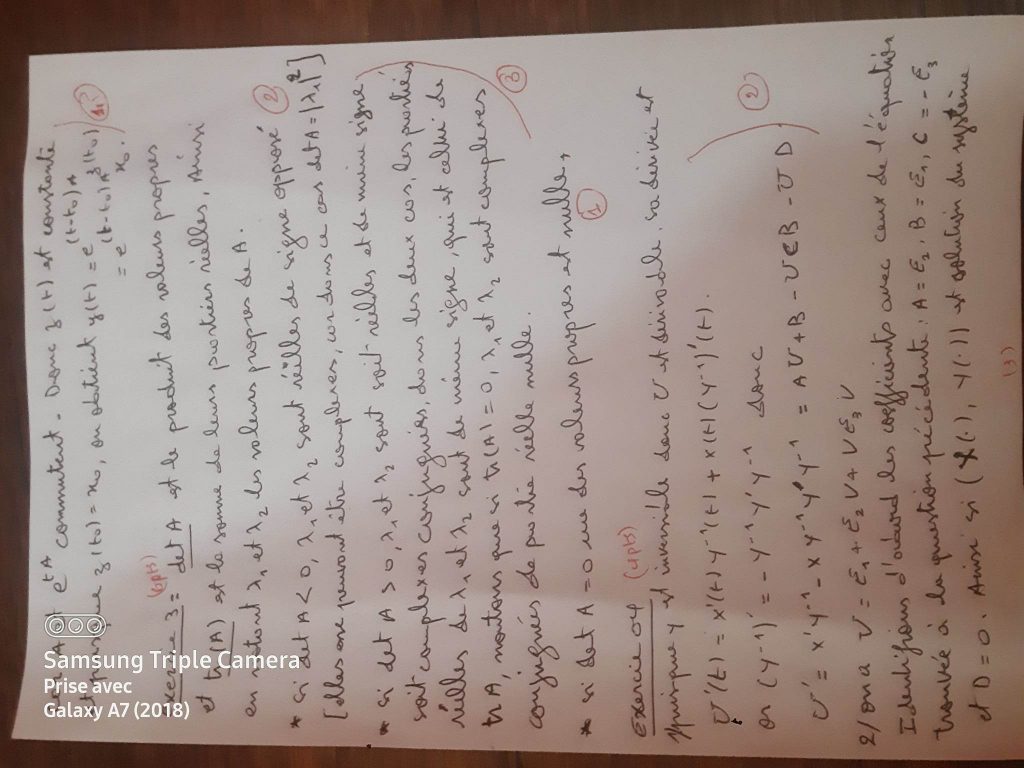 et A et e^{tA} commutent. Donc z(t) est constante
et puisque z(t0) = x0, on obtient y(t) = e^{(t-t0)A} z(t0)
= e^{(t-t0)A} x0.
exercice 3 = (6pts) det A est le produit des valeurs propres
et tr(A) est la somme de leurs parties réelles, Ainsi
en notant λ1 et λ2 les valeurs propres de A.
* si det A < 0, λ1 et λ2 sont réelles de signe opposé ②
[elles ne peuvent être complexes, car dans ce cas det A = |λ1|²]
* si det A > 0, λ1 et λ2 sont soit réelles et de même signe
soit complexes conjuguées, dans les deux cas, les parties
réelles de λ1 et λ2 sont de même signe, qui est celui de ③
tr A, notons que si tr(A) = 0, λ1 et λ2 sont complexes
conjugués de partie réelle nulle.
* si det A = 0 une des valeurs propres est nulle, ①
Exercice 04 (4pts)
Puisque Y est inversible donc U est dérivable, sa dérivée est
U'(t) = X'(t) Y^{-1}(t) + X(t) (Y^{-1})'(t).
or (Y^{-1})' = - Y^{-1} Y' Y^{-1} donc ②
U' = X' Y^{-1} - X Y^{-1} Y' Y^{-1} = AU + B - UCB - UD
2/ on a U' = E1 + E2 U + U E3 U
Identifions d'abord les coefficients avec ceux de l'équation
trouvée à la question précédente: A = E2, B = E1, C = - E3
et D = 0. Ainsi si (X(·), Y(·)) est solution du système
Samsung Triple Camera
Prise avec
Galaxy A7 (2018)